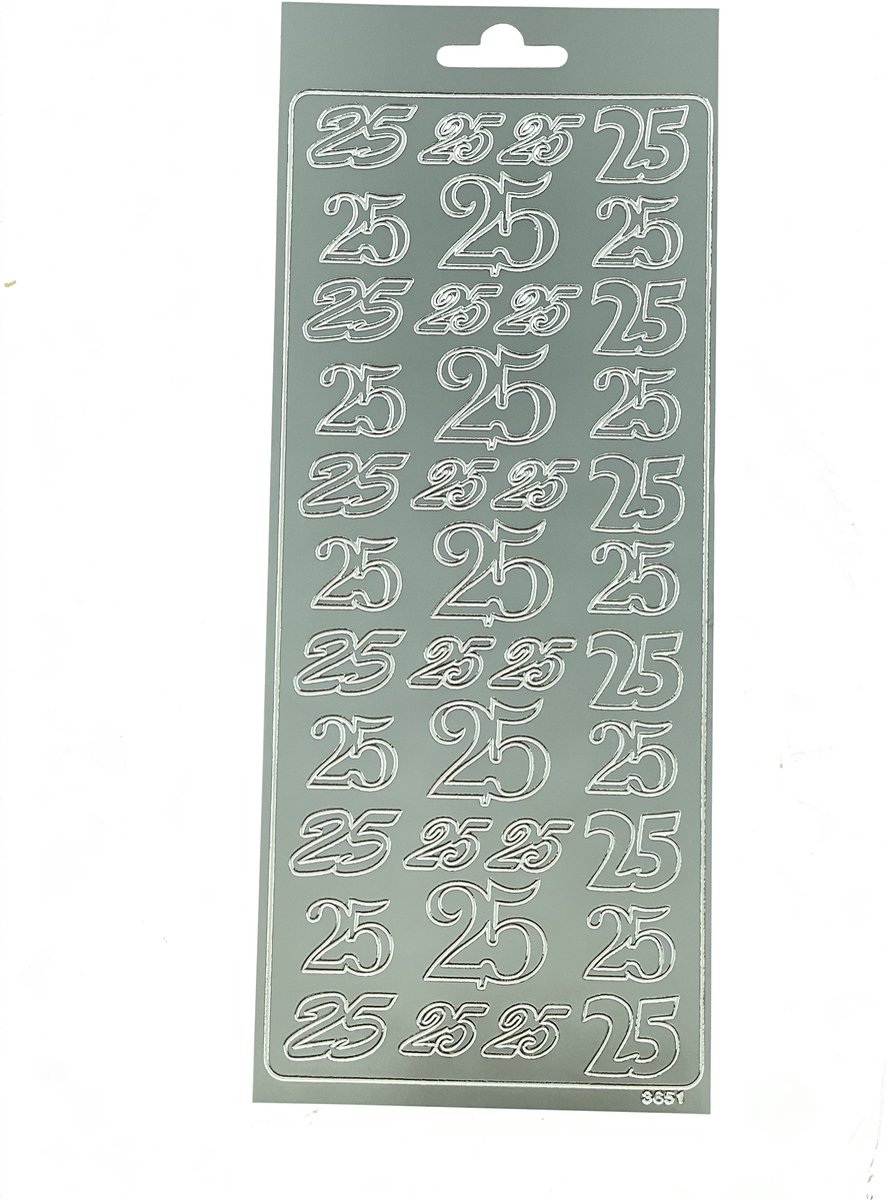 25 25 25 25
25 25 25
25 25 25 25
25 25 25
25 25 25 25
25 25 25
25 25 25 25
25 25 25
25 25 25 25
25 25 25
25 25 25 25
3651